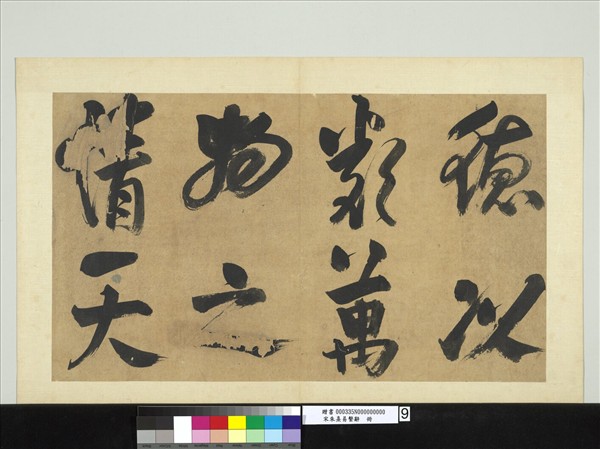 德以
類萬
物之
情天
贈書 000335N000000000
宋朱熹易繫辭 冊
9